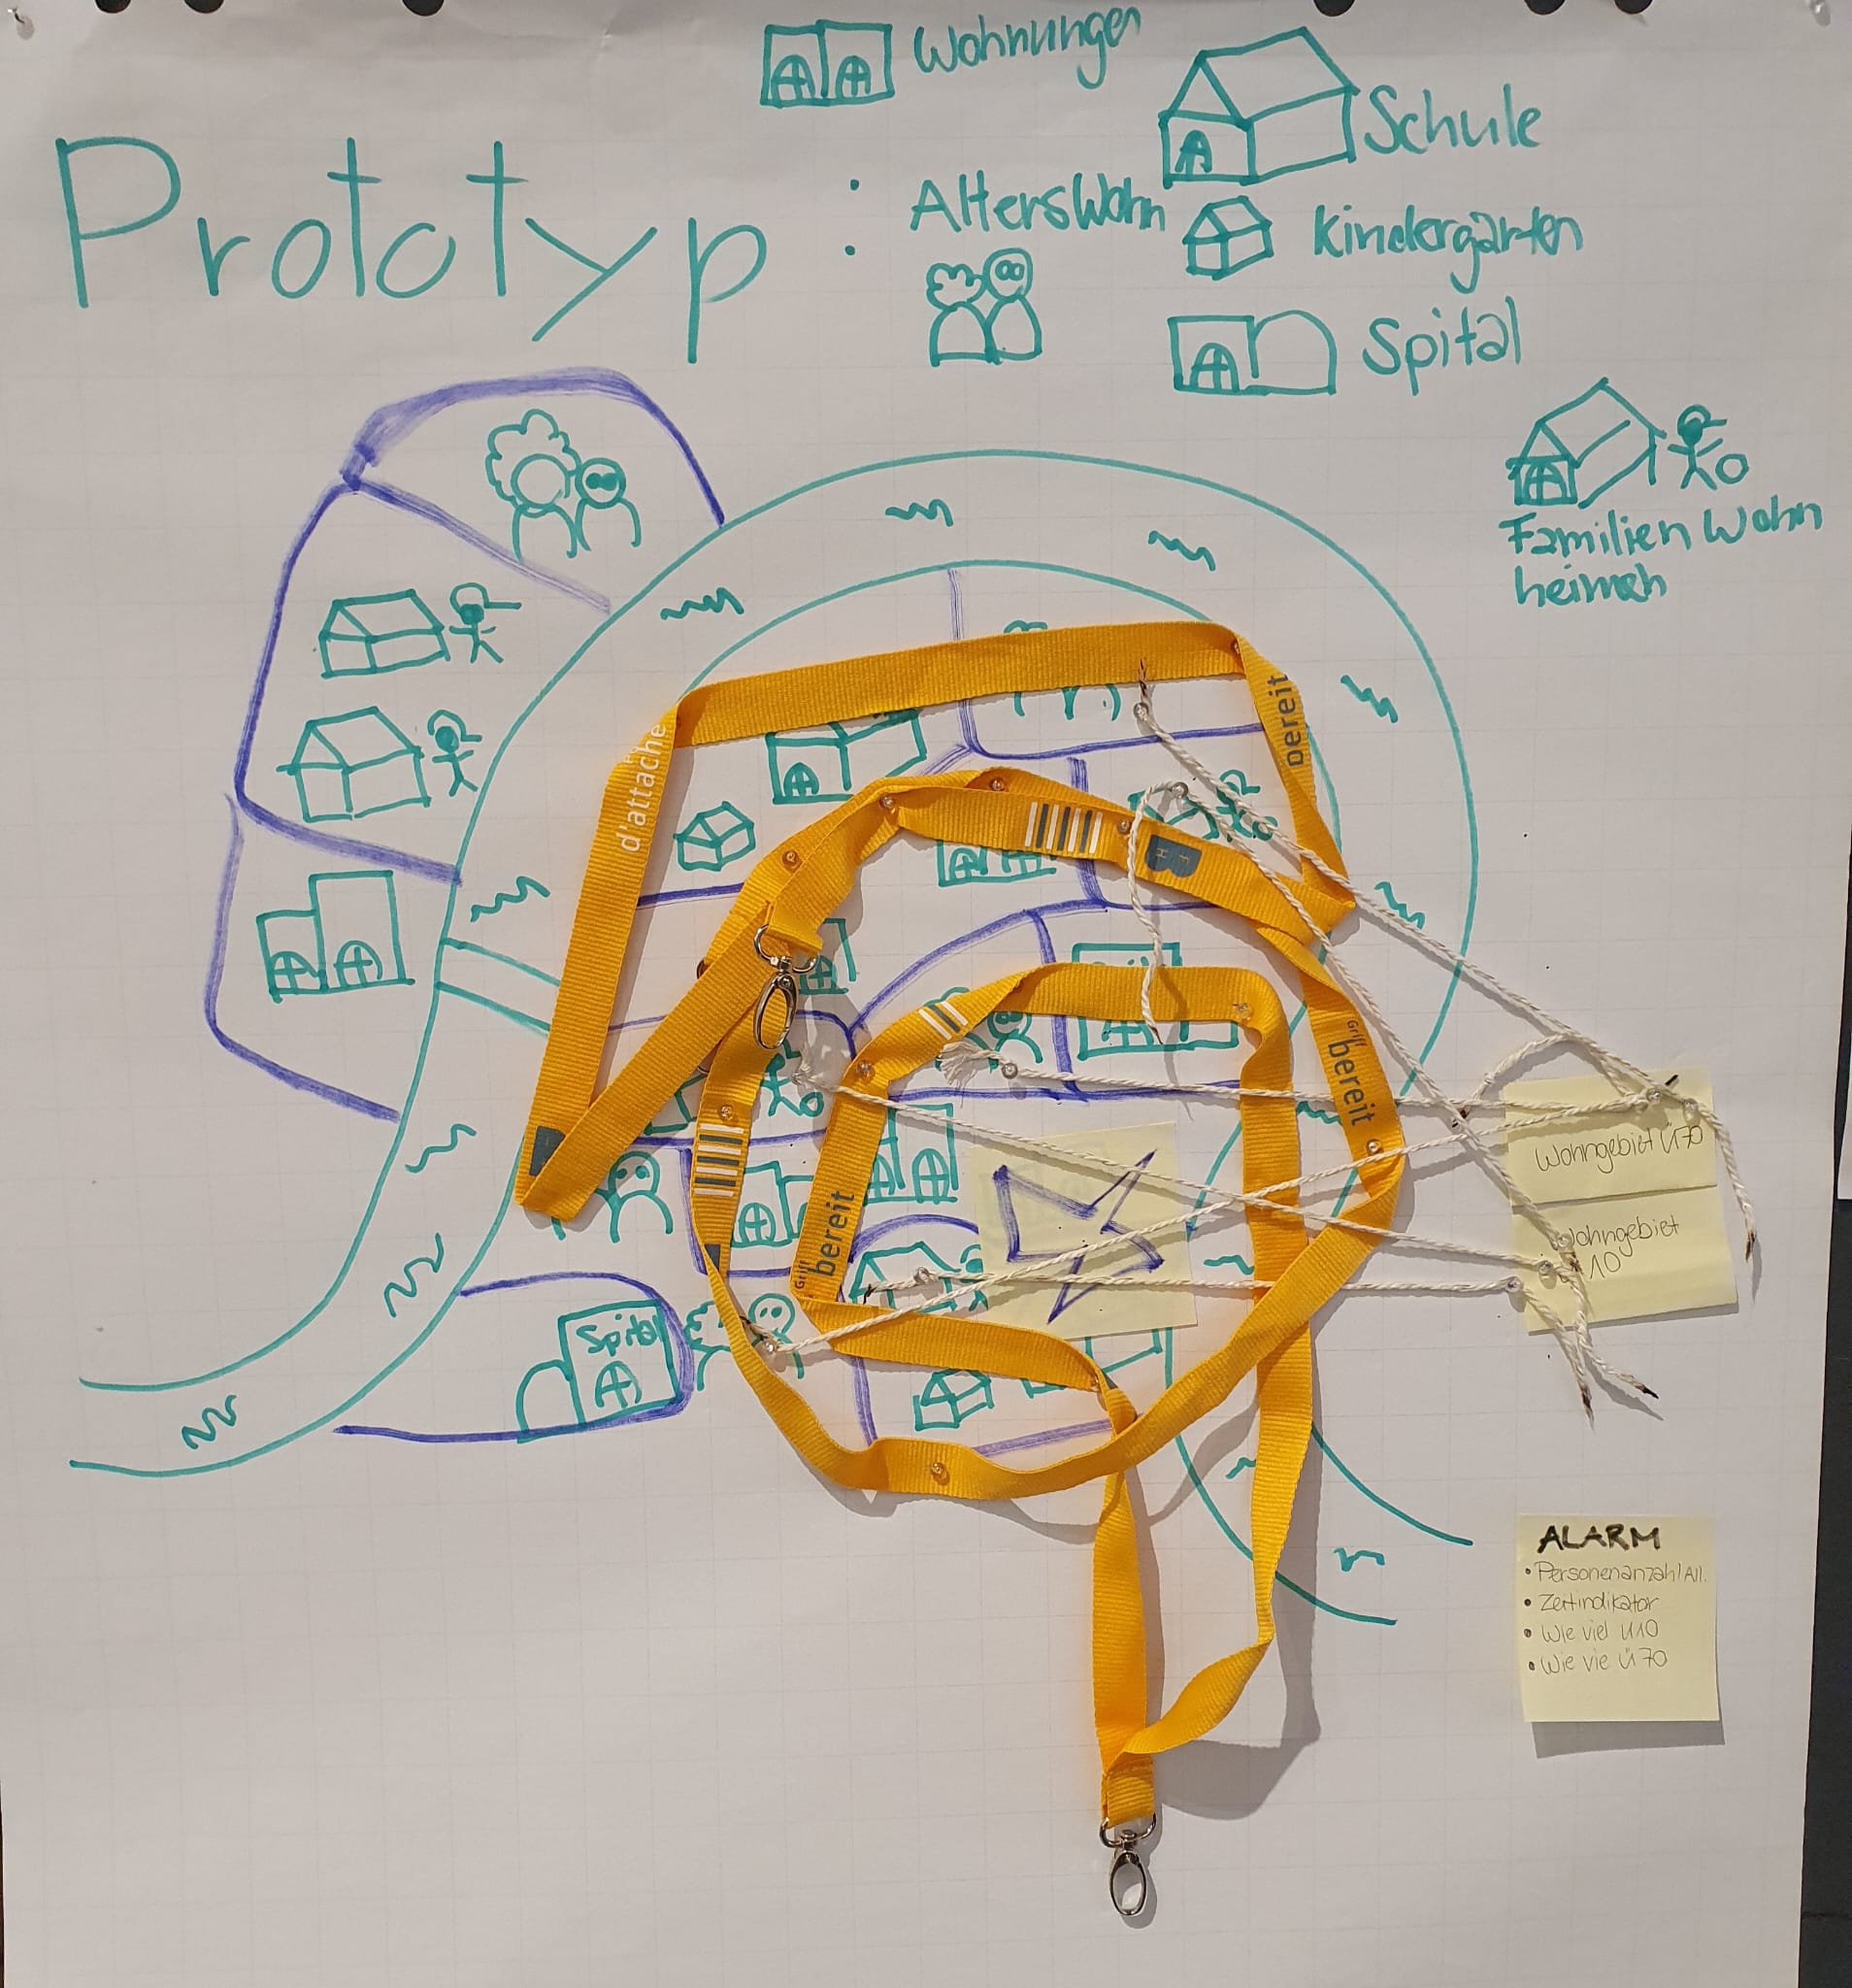 Wohnungen
Schule
Prototyp :
Alterswohn
Kindergärten
Spital
Familien Wohn
heimen
d'attache
bereit
Grill bereit
Grill bereit
Spital
Wohngebiet Ü70
Wohngebiet
Ü10
ALARM
• Personenanzahl All.
• Zeitindikator
• Wie viel U10
• Wie vie Ü70